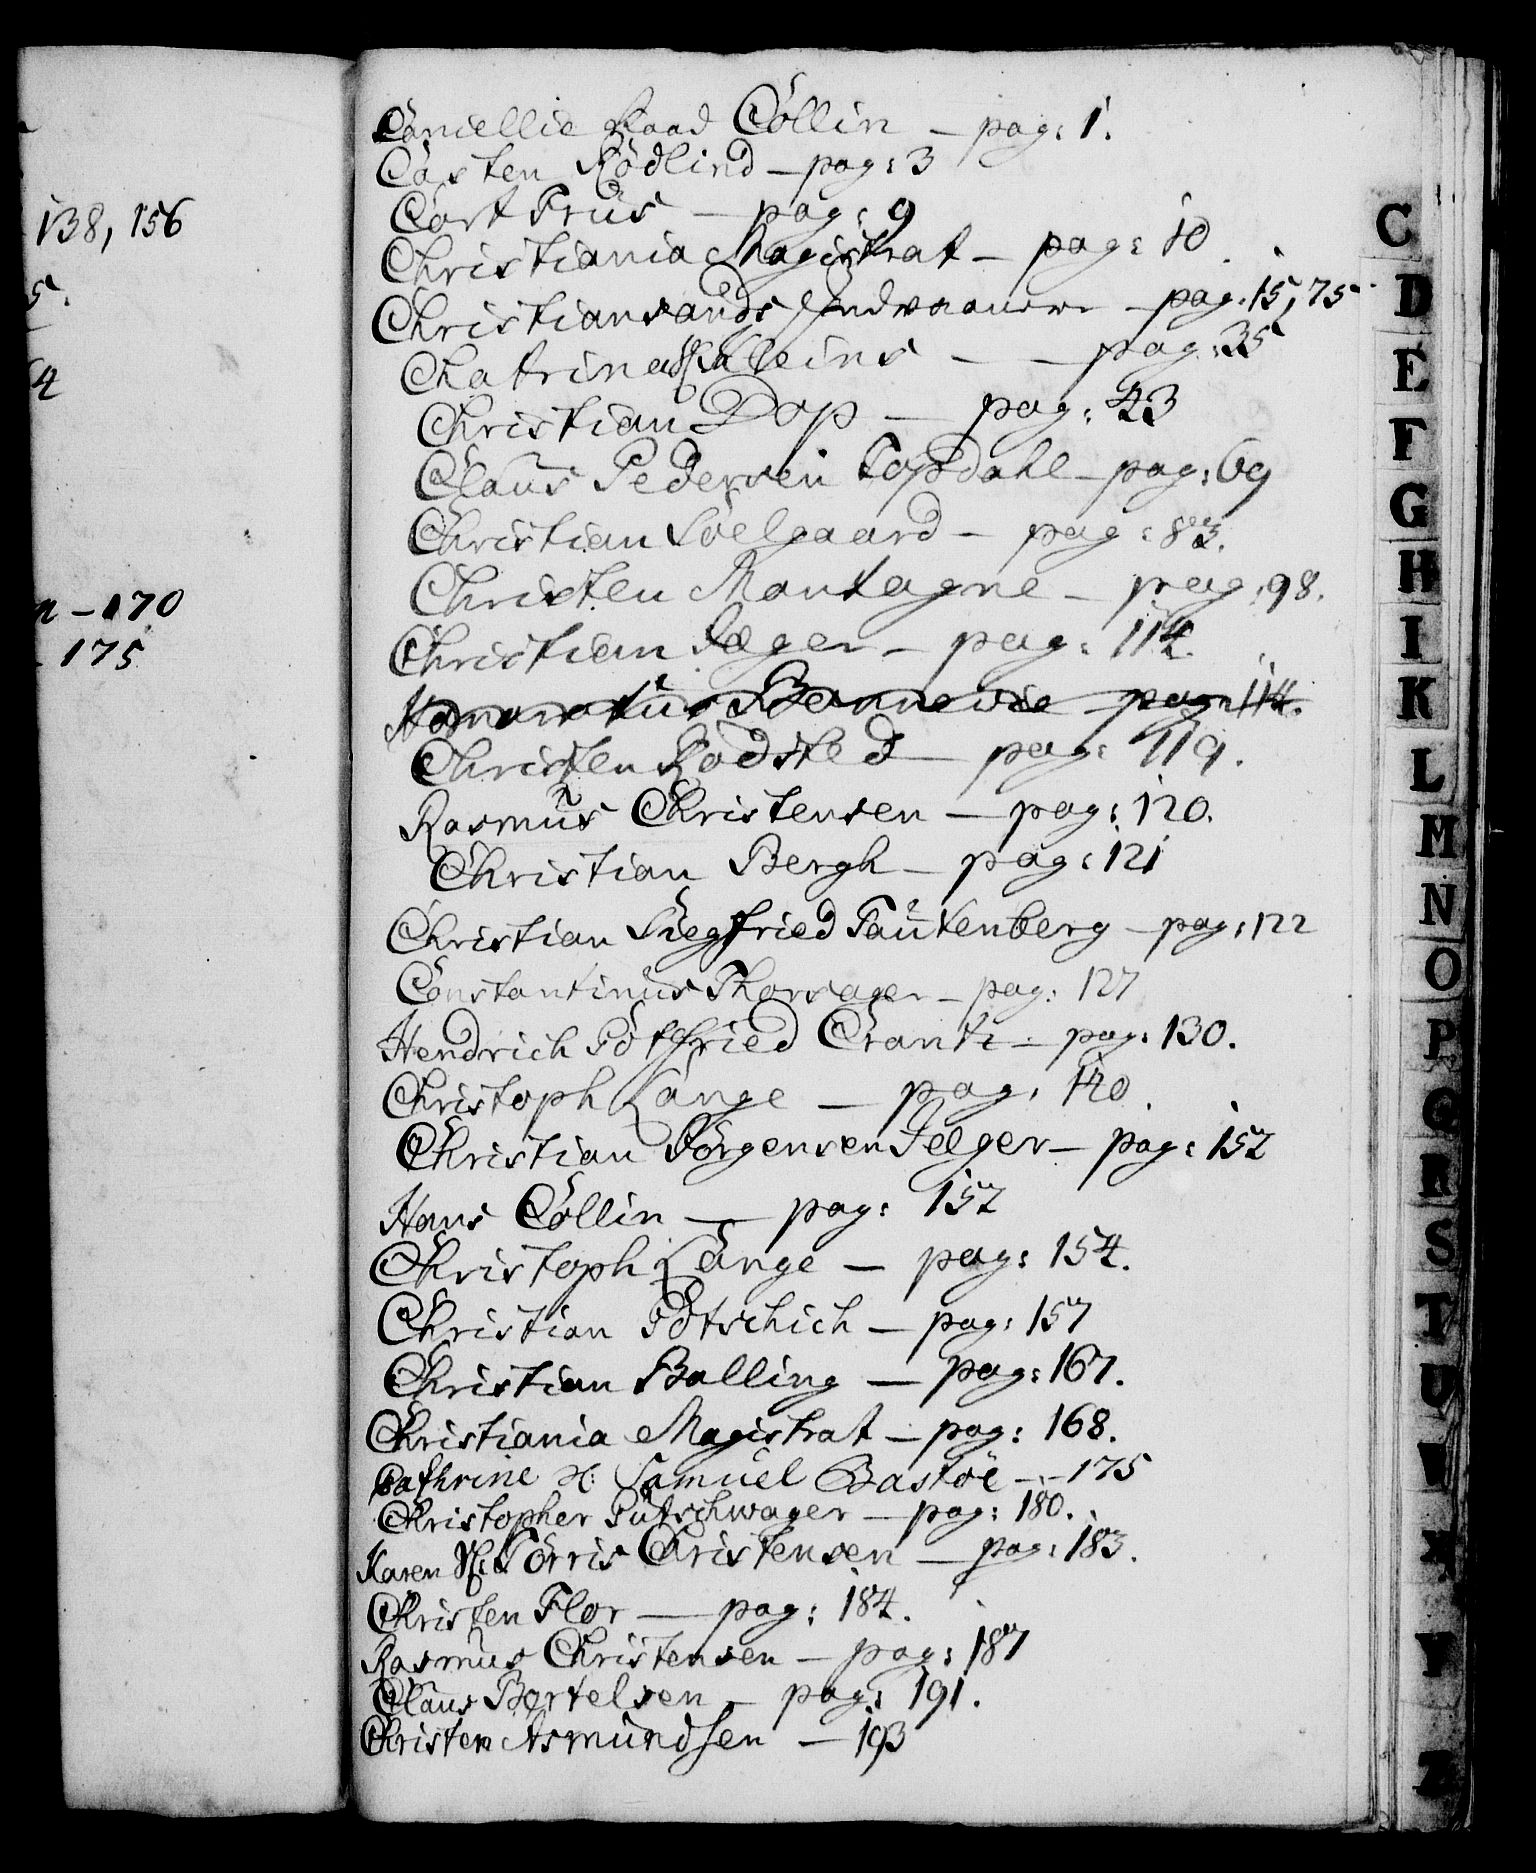 138, 156
5.
4
n - 170
- 175
Cancellie Raad Cöllin - pag: 1.
Casten Rödlind - pag: 3
Cort Frus - pag: 9
Christiania Magistrat - pag: 10.
Christiansands Indvaanere - pag. 15, 75
Chatrina Kleins - - pag: 35
Christian Dop - pag: 43
Claus Pedersen Topdahl - pag: 69
Christian Söelgaard - pag: 83.
Christen Montagne - pag: 98.
Christian Jæger - pag: 114.
pag: 114.
Christen Rodsted - pag: 119.
Rasmus Christensen - pag: 120.
Christian Bergh - pag: 121
Christian Siegfried Tautenberg - pag: 122
Constantinus Thorsager - pag: 127
Hendrich Gotfried Crantz - pag: 130.
Christoph Lange - pag: 140.
Christian Jörgensen Jeger - pag: 152
Hans Cöllin - pag: 152
Christoph Lange - pag: 154.
Christian Götschich - pag: 157
Christian Balling - pag: 167.
Christiania Magistrat - pag: 168.
Cathrine Sl: Samuel Bastöe - - 175
Christopher Gutschwager - pag: 180.
Karen Sl: Törris Christensen - pag: 183.
Christen Flor - pag: 184.
Rasmus Christensen - pag: 187
Claus Bertelsen - pag: 191.
Christen Asmundsen - 193
C
D
E
F
G
H
I
K
L
M
N
O
P
Q
R
S
T
U
W
X
Y
Z